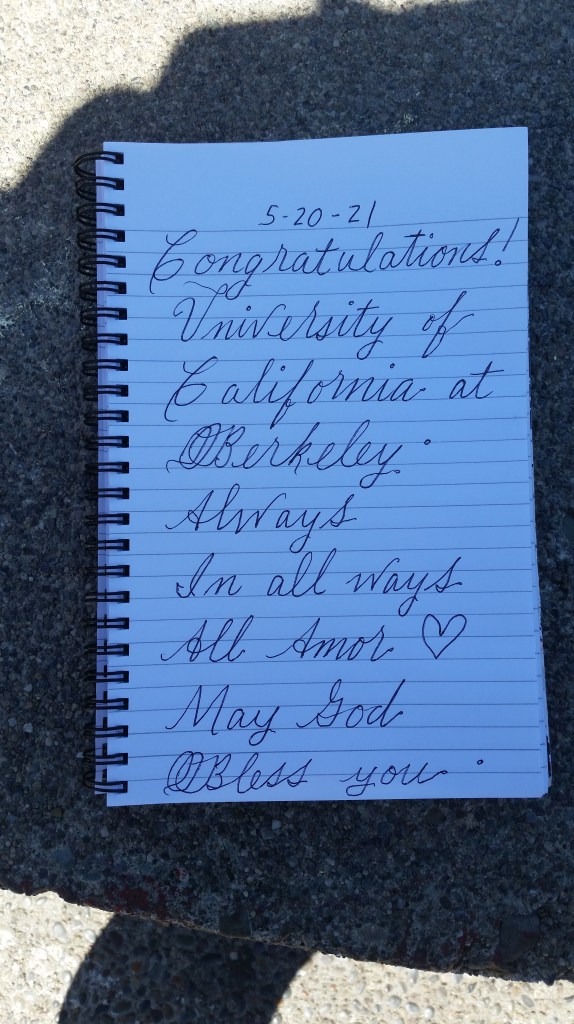 5-20-21
Congratulations!
University of
California at
Berkeley.
Always
In all ways
All Amor ♡
May God
Bless you.